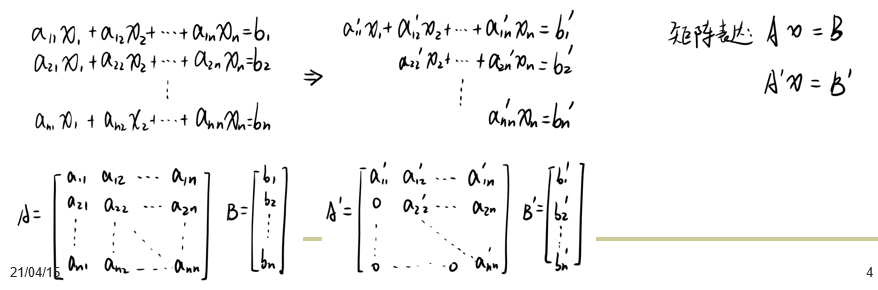 a₁₁x₁+a₁₂x₂+⋯+a₁ₙxₙ=b₁
a₂₁x₁+a₂₂x₂+⋯+a₂ₙxₙ=b₂
⋮
aₙ₁x₁+aₙ₂x₂+⋯+aₙₙxₙ=bₙ
⇒
a₁₁'x₁+a₁₂'x₂+⋯+a₁ₙ'xₙ=b₁'
a₂₂'x₂+⋯+a₂ₙ'xₙ=b₂'
⋮
aₙₙ'xₙ=bₙ'
矩阵表达: Ax=B
A'x=B'
A=
a₁₁ a₁₂ ⋯ a₁ₙ
a₂₁ a₂₂ ⋯ a₂ₙ
⋮ ⋮ ⋱ ⋮
aₙ₁ aₙ₂ ⋯ aₙₙ
B=
b₁
b₂
⋮
bₙ
A'=
a₁₁' a₁₂' ⋯ a₁ₙ'
0 a₂₂' ⋯ a₂ₙ
⋮ ⋱
0 ⋯ 0 aₙₙ'
B'=
b₁'
b₂'
⋮
bₙ'
21/04/15
4